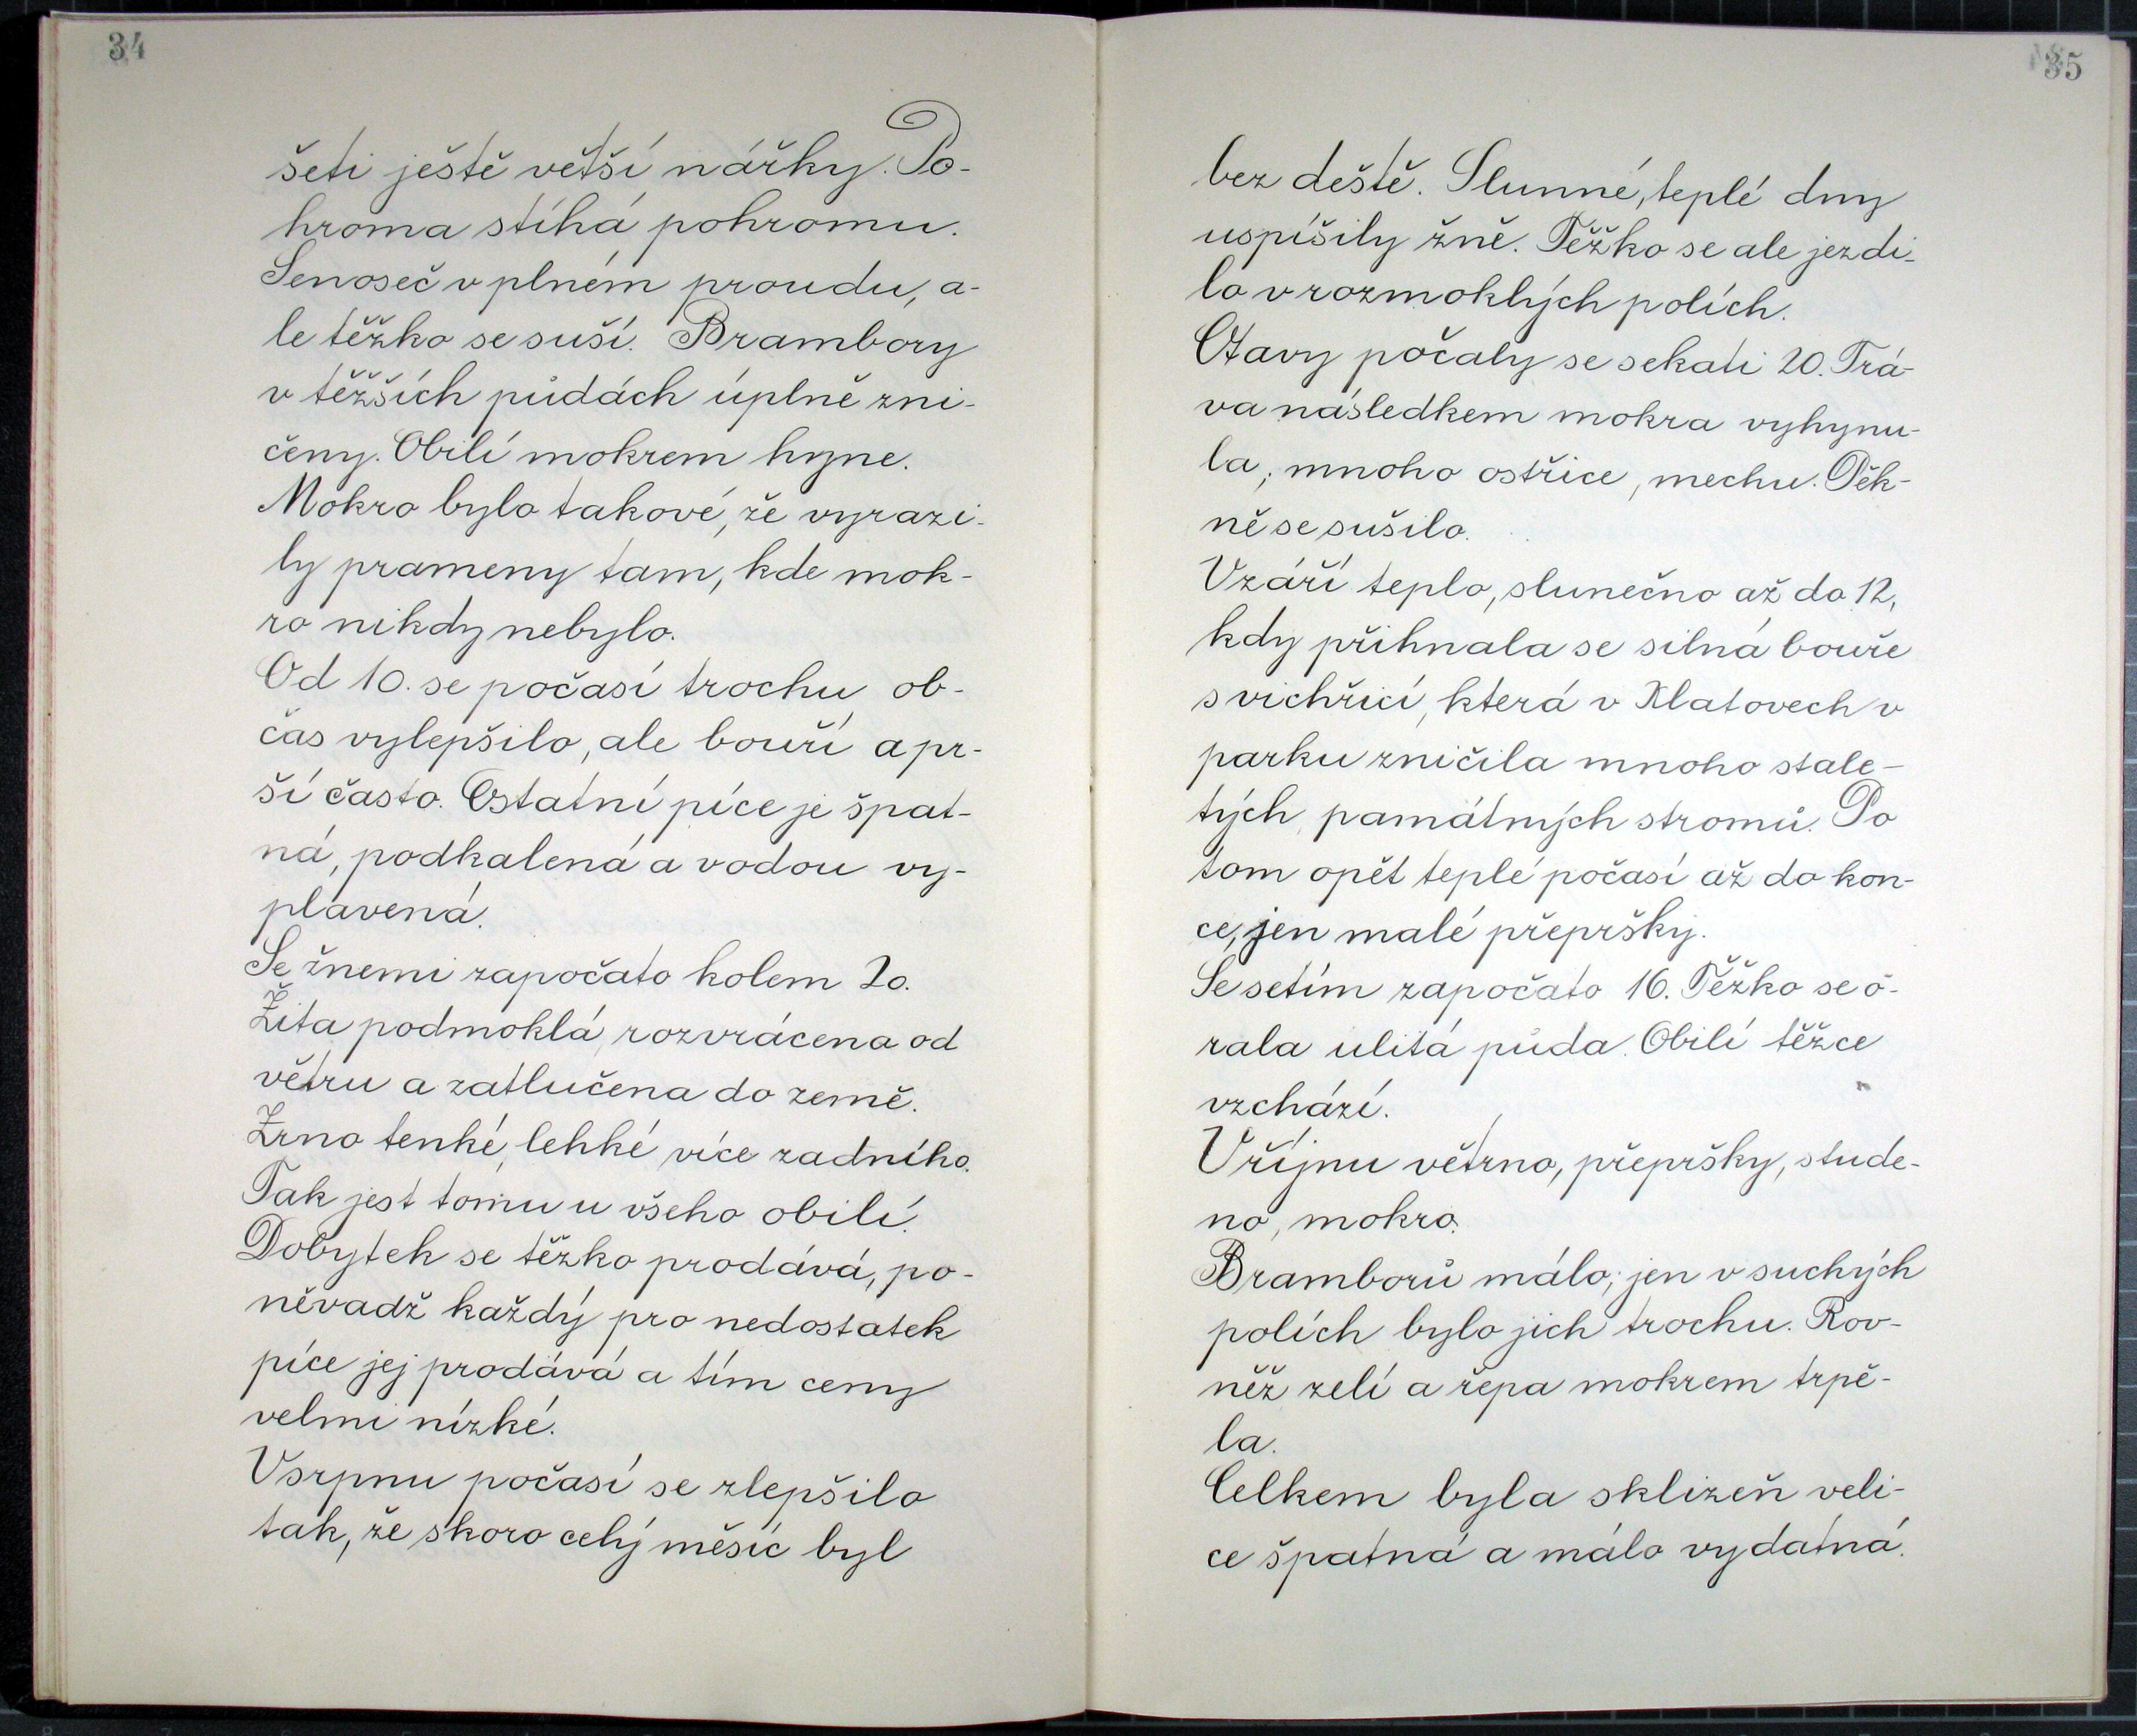 34
šeti ještě větší nářky. Po-
hroma stíhá pohromu.
Senoseč v plném proudu, a-
le těžko se suší. Brambory
v těžších půdách úplně zni-
čeny. Obilí mokrem hyne.
Mokro bylo takové, že vyrazi-
ly prameny tam, kde mok-
ro nikdy nebylo.
Od 10. se počasí trochu ob-
čas vylepšilo, ale bouří a pr-
ší často. Ostatní píce je špat-
ná, podkalená a vodou vy-
plavená.
Se žněmi započato kolem 20.
Žita podmoklá, rozvrácena od
větru a zatlučena do země.
Zrno tenké, lehké, více zadního.
Tak jest tomu u všeho obilí.
Dobytek se těžko prodává, po-
něvadž každý pro nedostatek
píce jej prodává a tím ceny
velmi nízké.
V srpnu počasí se zlepšilo
tak, že skoro celý měsíc byl
35
bez deště. Slunné, teplé dny
uspíšily žně. Těžko se ale jezdi-
lo v rozmoklých polích.
Otavy počaly se sekati 20. Trá-
va následkem mokra vyhynu-
la; mnoho ostřice, mechu. Pěk-
ně se sušilo.
V září teplo, slunečno až do 12,
kdy přihnala se silná bouře
s vichřicí, která v Klatovech v
parku zničila mnoho stale-
tých, památných stromů. Po
tom opět teplé počasí až do kon-
ce, jen malé přepršky.
Se setím započato 16. Těžko se o-
rala ulitá půda. Obilí těžce
vzchází.
V říjnu větrno, přepršky, stude-
no, mokro.
Bramborů málo; jen v suchých
polích bylo jich trochu. Rov-
něž zelí a řepa mokrem trpě-
la.
Celkem byla sklizeň veli-
ce špatná a málo vydatná.